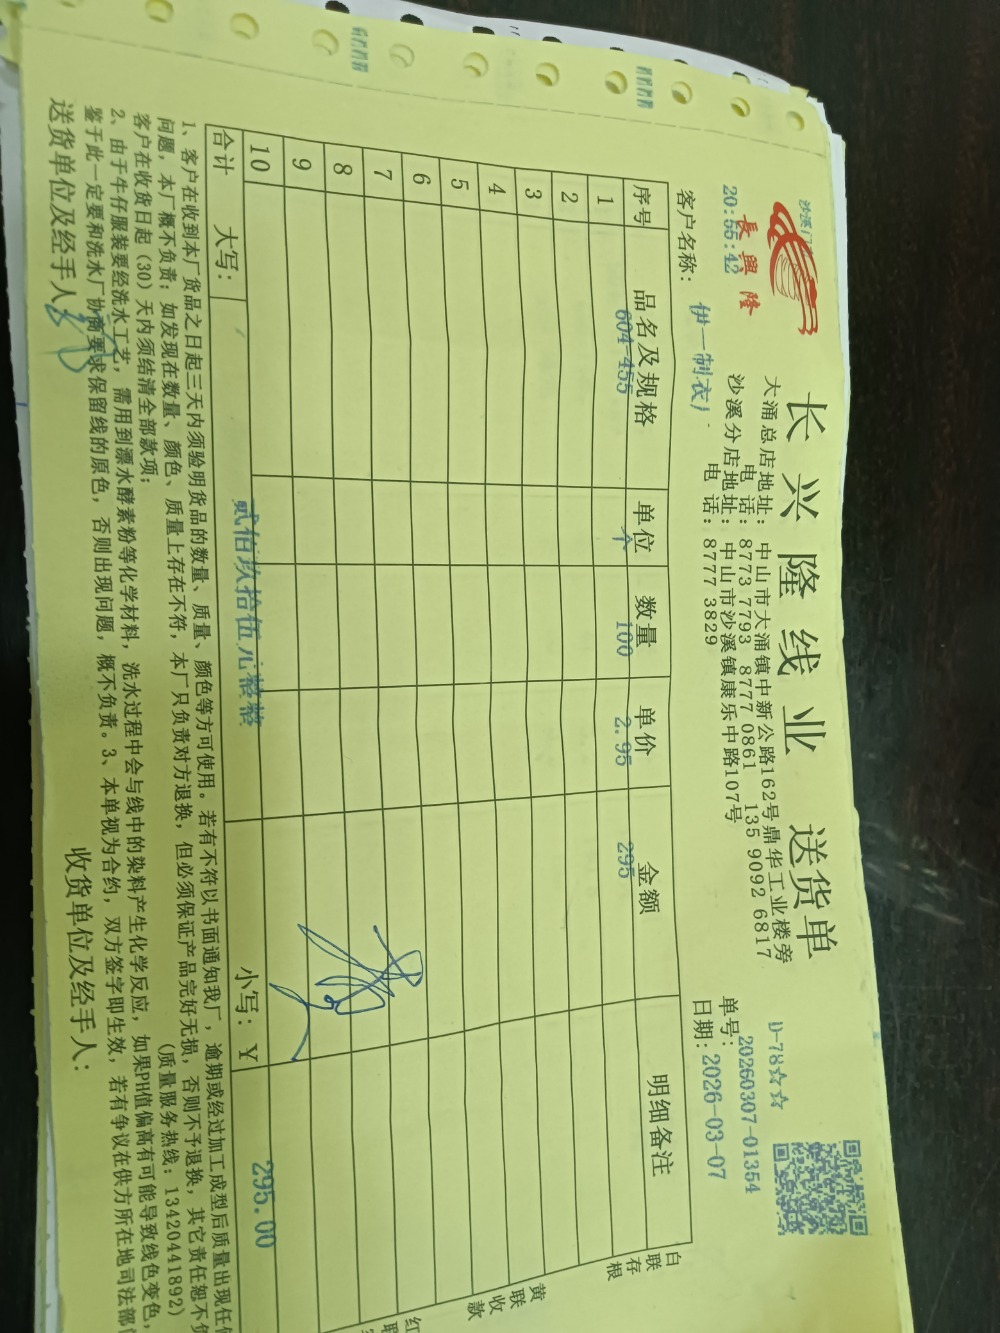 長興隆
20:55:42
长兴隆线业 送货单
大涌总店地址: 中山市大涌镇中新公路162号鼎华工业楼旁
电 话: 8773 7793 8777 0861 135 9092 6817
沙溪分店地址: 中山市沙溪镇康乐中路107号
电 话: 8777 3829
D-78☆☆
单号: 20260307-01354
客户名称: 伊一制衣厂
日期: 2026-03-07
序号 品名及规格 单位 数量 单价 金额 明细备注
1 604-455 个 100 2.95 295
2
3
4
5
6
7
8
9
10
合计 大写: 贰佰玖拾伍元整整 小写: ¥ 295.00
白联存根
黄联收款
红联
1、客户在收到本厂货品之日起三天内须验明货品的数量、质量、颜色等方可使用。若有不符以书面通知我厂，逾期或经过加工成型后质量出现任何
问题，本厂概不负责；如发现在数量、颜色、质量上存在不符，本厂只负责对方退换，但必须保证产品完好无损，否则不予退换，其它责任恕不负
客户在收货日起（30）天内须结清全部款项； (质量服务热线: 13420441892)
2、由于牛仔服装要经洗水工艺，需用到漂水酵素粉等化学材料，洗水过程中会与线中的染料产生化学反应，如果PH值偏高有可能导致线色变色，
鉴于此一定要和洗水厂协商要求保留线的原色，否则出现问题，概不负责。3、本单视为合约，双方签字即生效，若有争议在供方所在地司法部门
送货单位及经手人: 收货单位及经手人: